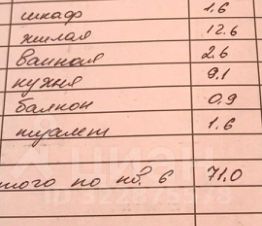 шкаф 1.6
жилая 12.6
ванная 2.6
кухня 9.1
балкон 0.9
туалет 1.6
итого по кв. 6 71.0